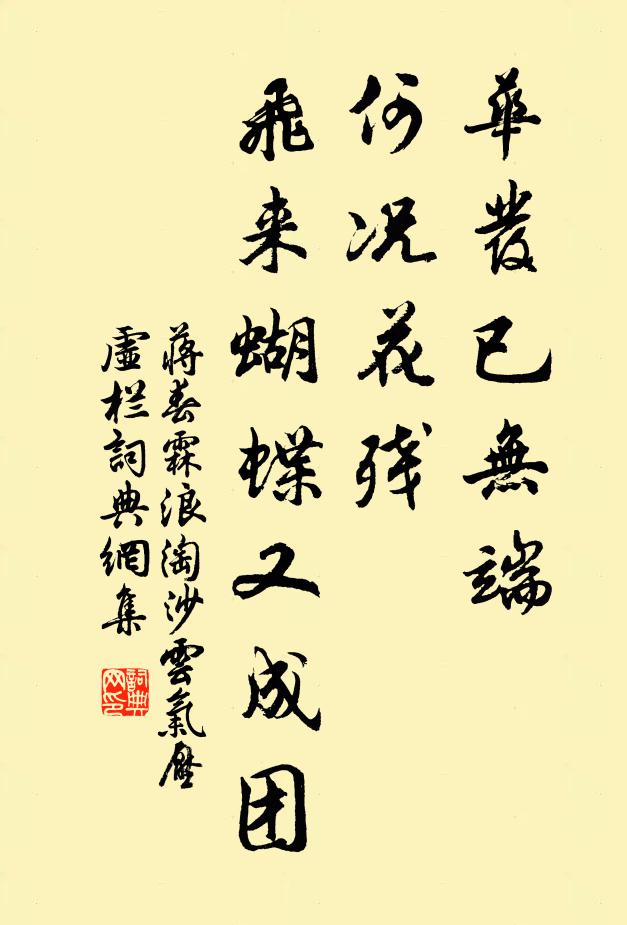 華發已無端
何况花残
飛来蝴蝶又成团
蔣春霖浪淘沙雲氣壓
虛栏詞典網集
詞典网印